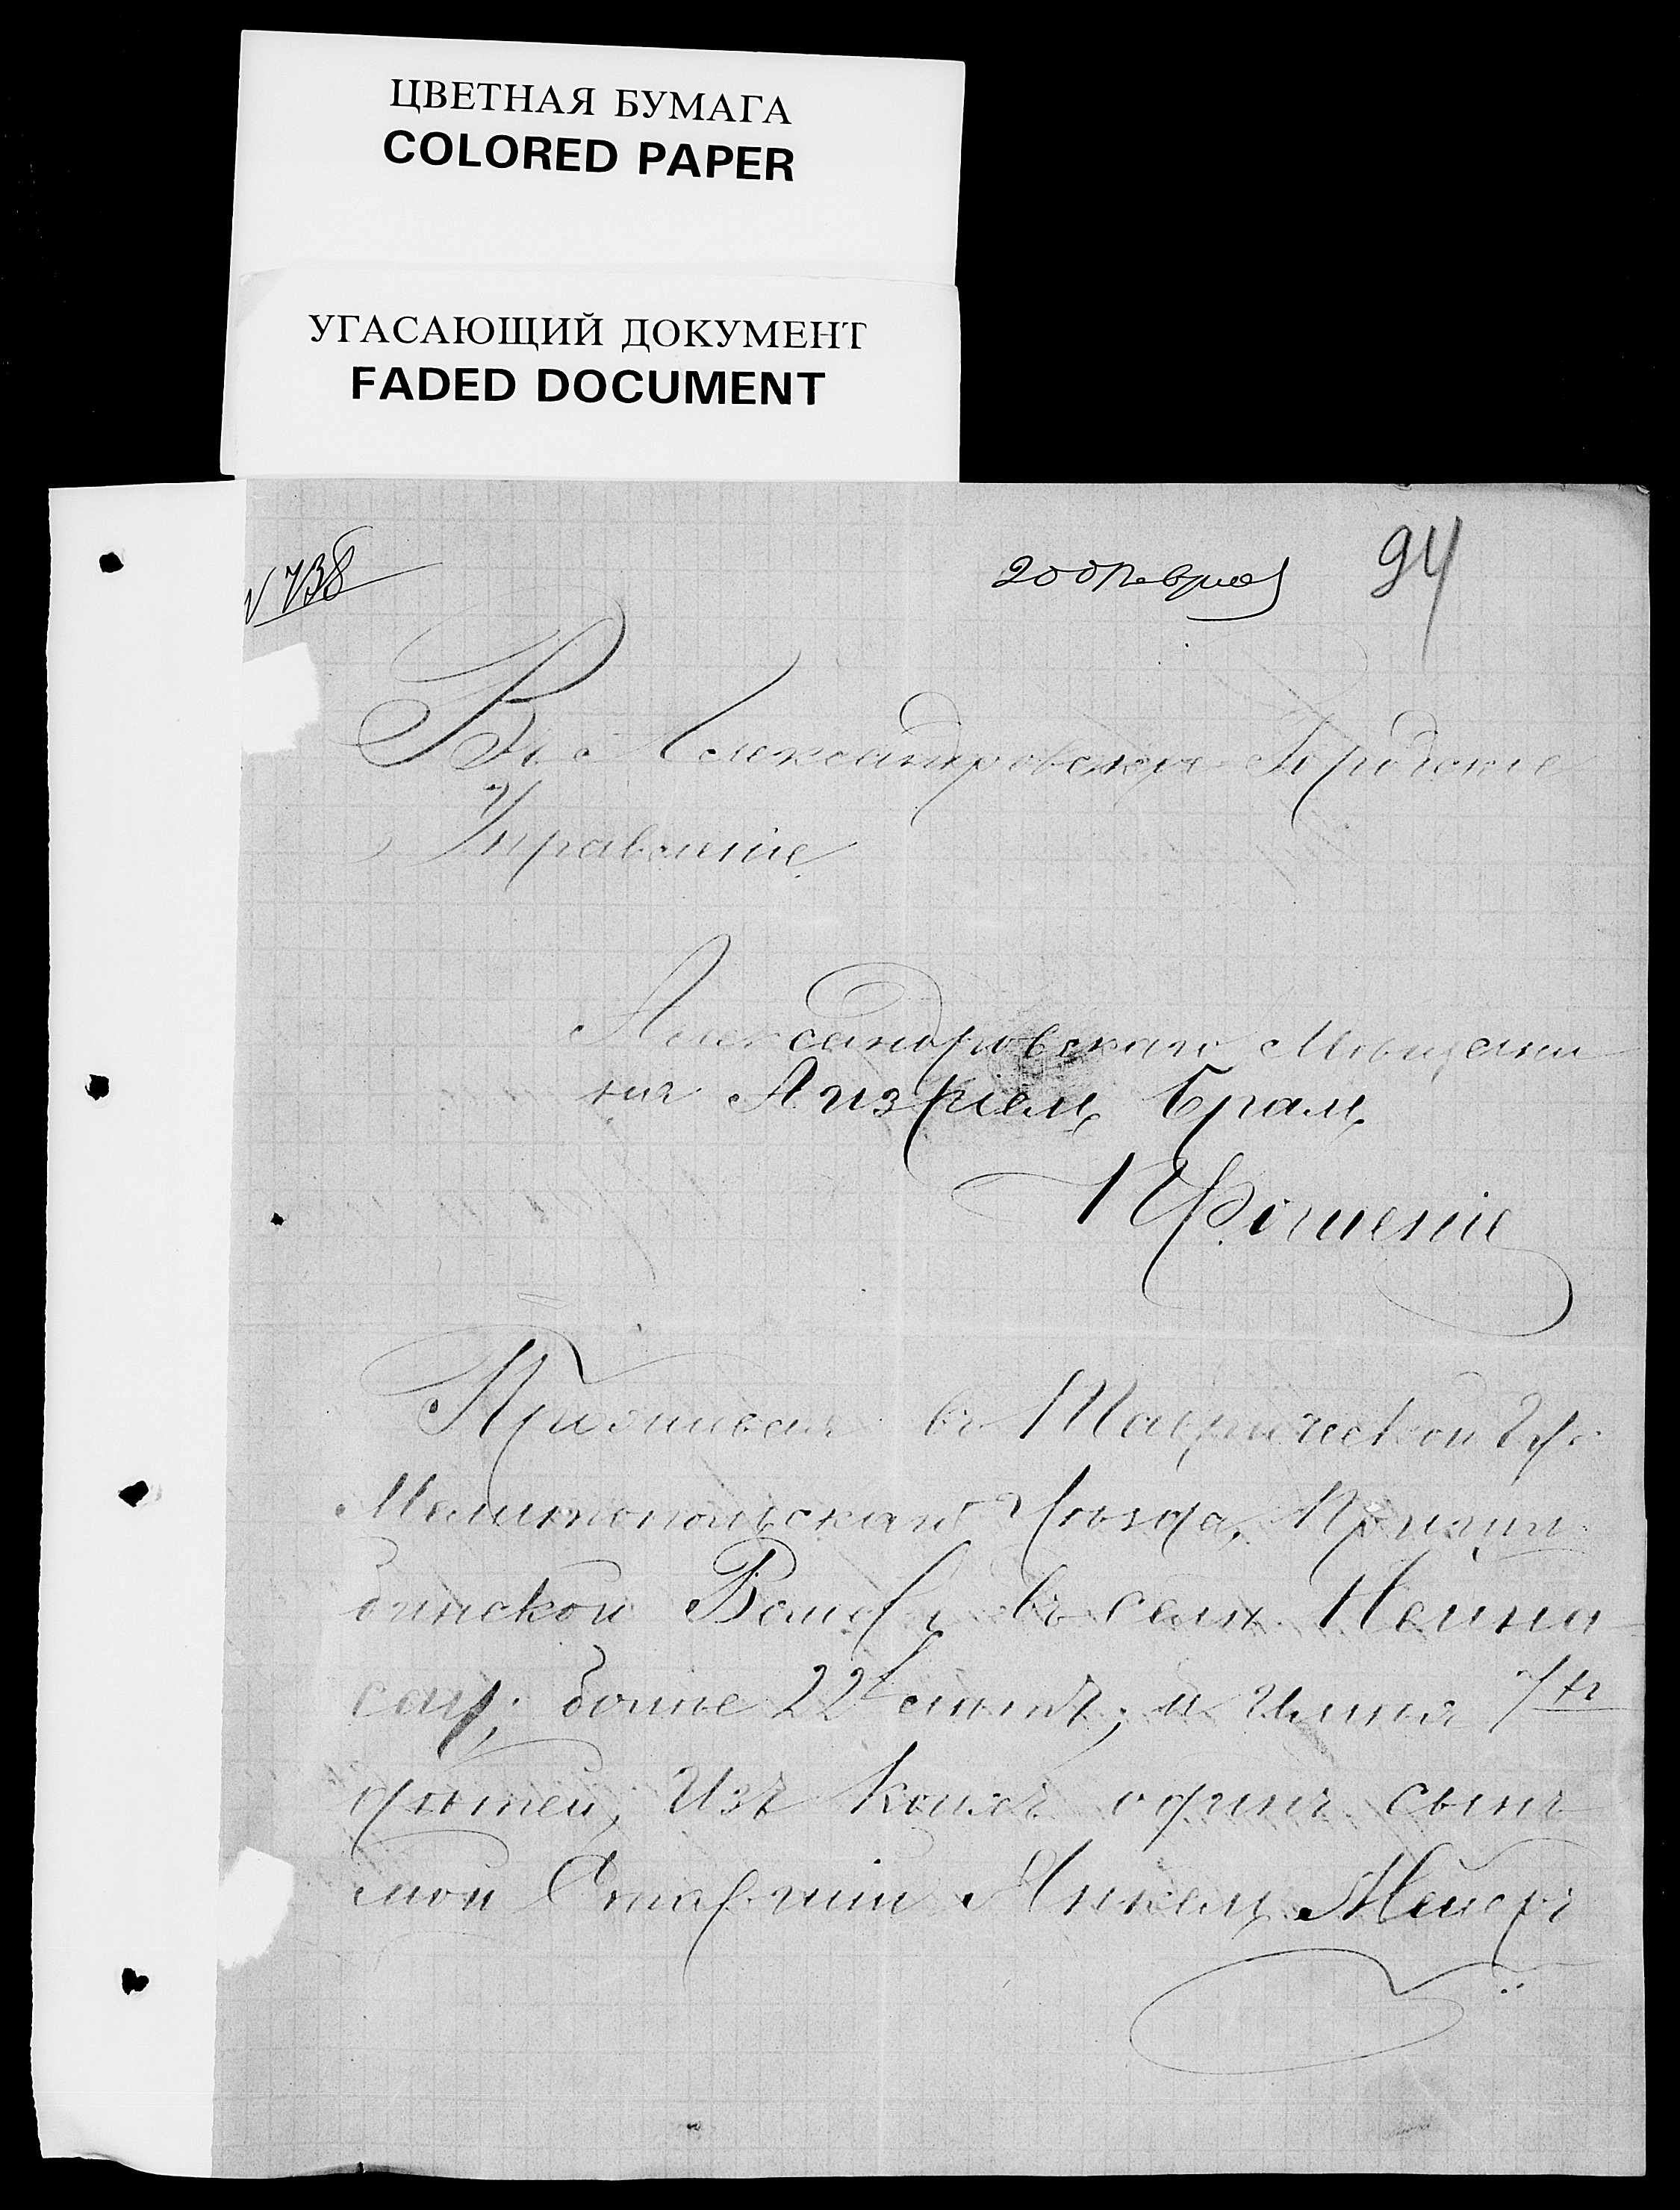 ЦВЕТНАЯ БУМАГА
COLORED PAPER
УГАСАЮЩИЙ ДОКУМЕНТ
FADED DOCUMENT
N 738
20 Февраля 94
Въ Александровское Городское
Управленіе
Александровскаго Мѣщани
на Азріель Брамъ
Прошеніе
Проживая въ Таврической Губ.
Мелитопольскаго Уѣзда,
Волости въ селѣ
более 22 лѣтъ, и имѣя 7м
дѣтей, изъ коихъ одинъ сынъ
мой